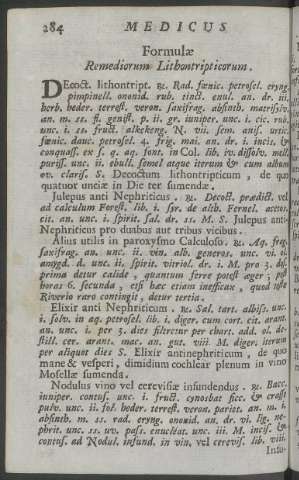 284 MEDICUS
Formulæ
Remediorum Lithontripticorum.
DEcoct. lithontript. ℞. Rad. fœnic. petrosel. eryng.
pimpinell. ononid. rub. tinct. enul. an. dr. iii.
herb. heder. terrest. veron. saxifrag. absinth. matrisylv.
an. m. ss. fl. genist. p. ii. gr. iuniper. unc. i. cic. rub.
unc. i. ss. fruct. alkekeng. N. vii. sem. anis. urtic.
fœnic. dauc. petrosel. 4. frig. mai. an. dr. i. incis. &
conquass. ex s. q. aq. font. in Col. lib. iv. dissolv. mell.
puriss. unc. ii. ebull. semel atque iterum & cum album.
ov. clarif. S. Decoctum lithontripticum, de quo
quatuor unciæ in Die ter sumendæ.
Julepus anti Nephriticus. ℞. Decoct. prædict. vel
ad calculum Forest. lib. i. syr. de alth. Fernel. acetos.
cit. an. unc. i. spirit. sal. dr. ss. M. S. Julepus anti-
Nephriticus pro duabus aut tribus vicibus.
Alius utilis in paroxysmo Calculoso. ℞. Aq. frag.
saxifrag. an. unc. ii. vin. alb. generos. unc. vi. ol.
amygd. d. unc. ii. spirit. vitriol. dr. i. M. pro 3. dos.
prima detur calide, quantum ferre potest æger; post
horas 6. secunda, etsi hæc etiam inefficax, quod teste
Riverio raro contingit, detur tertia.
Elixir anti Nephriticum. ℞. Sal. tart. albiss. unc.
i. solv. in aq. petrosel. lib. i. diger. cum cort. cit. arant.
an. unc. i. per 3. dies filtretur per chart. add. ol. de-
still. cer. arant. mac. an. gut. viii. M. diger. iterum
per aliquot dies S. Elixir antinephriticum, de quo
mane & vesperi, dimidium cochlear plenum in vino
Mosellæ sumendum.
Nodulus vino vel cerevisiæ infundendus. ℞. Bacc.
iuniper. contus. unc. i. fruct. cynosbat sicc. & crasse
pulv. unc. ii. fol. heder. terrest. veron. pariet. an. m. i.
absinth. m. ss. rad. eryng. ononid. an. dr. vi. lig. ne-
phrit. unc. ss. uv. pass. enucleat. unc. iii. M. incis. &
contus. ad Nodul. infund. in vin. vel cerevis. lib. viii.
Infu-